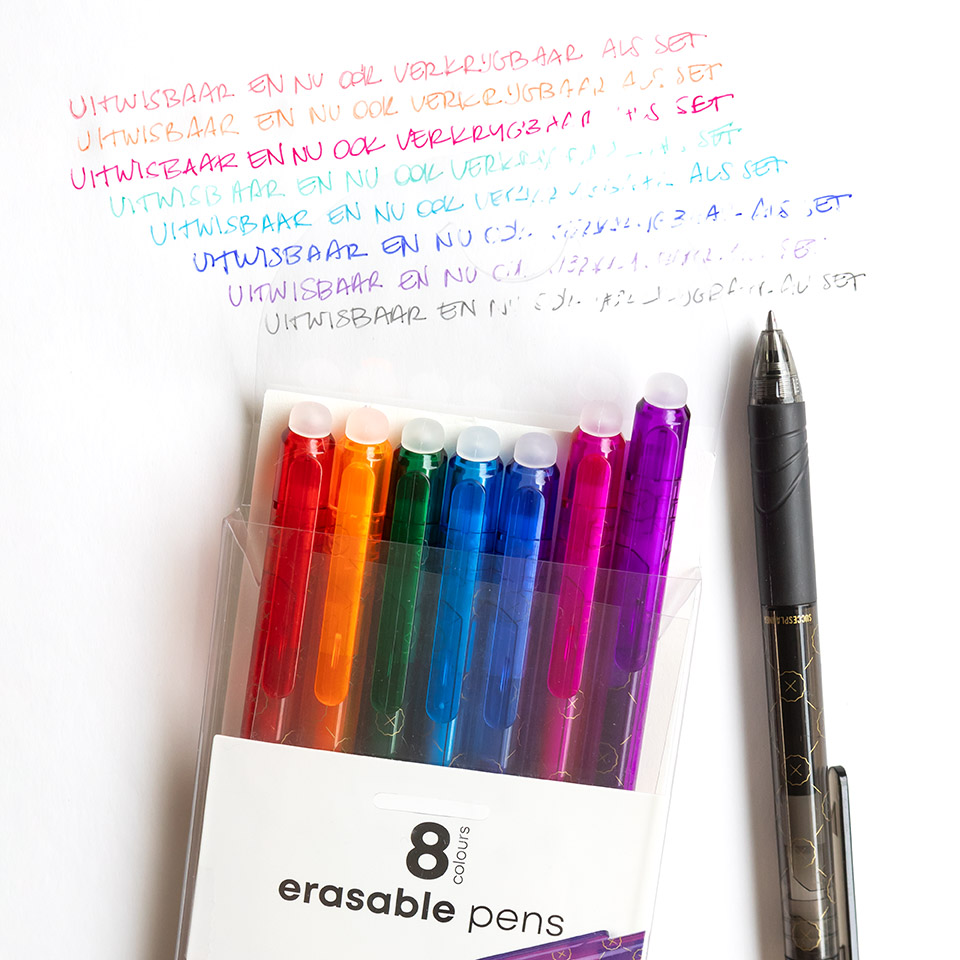 UITWISBAAR EN NU OOK VERKRIJGBAAR ALS SET
UITWISBAAR EN NU OOK VERKRIJGBAAR ALS SET
UITWISBAAR EN NU OOK VERKRIJGBAAR SET
UITWISBAAR EN NU OOK SET
UITWISBAAR EN NU OOK ALS SET
UITWISBAAR EN NU ALS SET
UITWISBAAR EN NU SET
UITWISBAAR EN SET
SUCCESPLANNER
8 colours
erasable pens